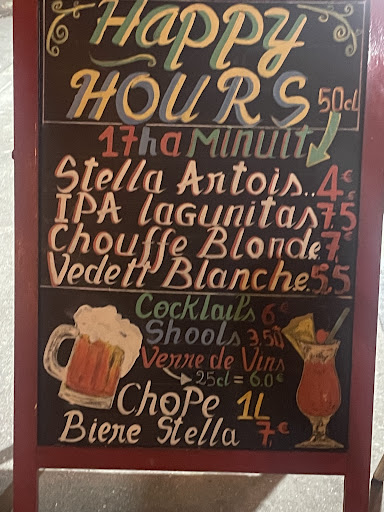 Happy
HOURS 50cl
17h a Minuit
Stella Artois.. 4€
IPA lagunitas 7,5
Chouffe Blonde 7€
Vedett Blanche. 5,5
Cocktails 6€
Shools 3.50
Verre de Vins
25cl = 6.0€
ChoPe 1L
Biere Stella 7€